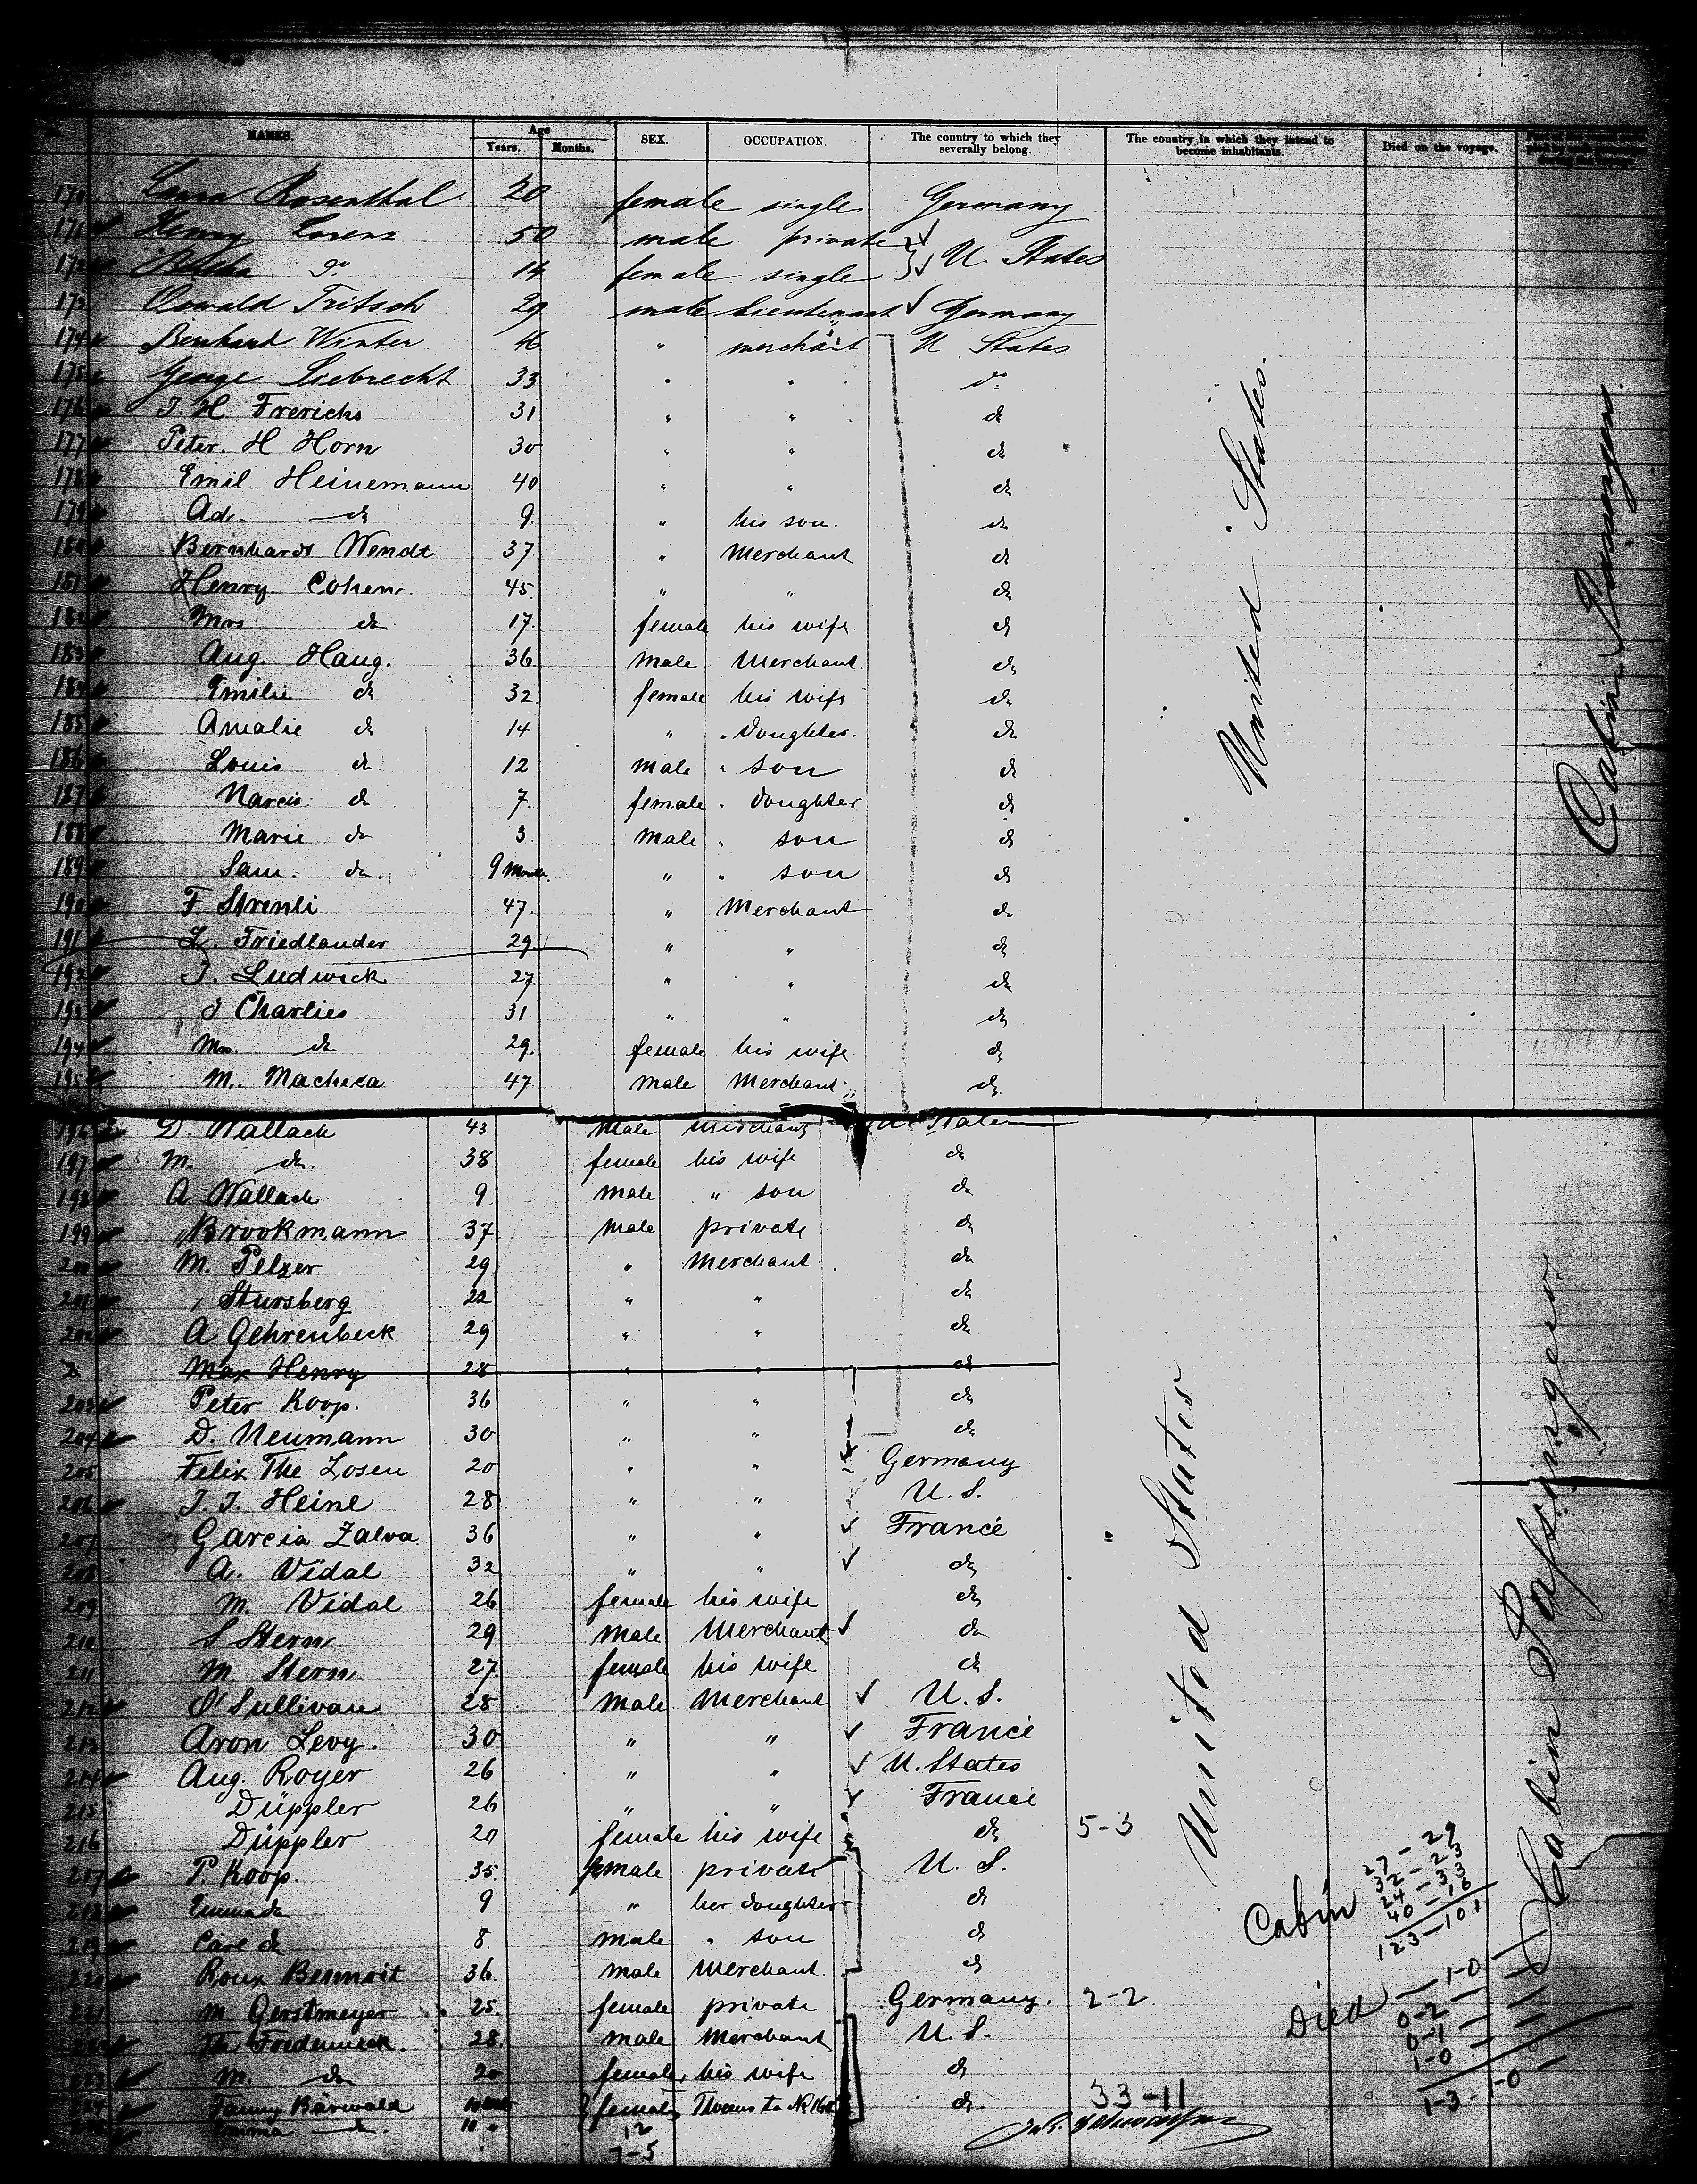 NAMES. Age Years. Months. SEX. OCCUPATION. The country to which they severally belong. The country in which they intend to become inhabitants. Died on the voyage.
170 Laura Rosenthal 20 female single Germany
171 Henry Lorenz 50 male private
172 Bertha do 14 female single U. States
173 Oswald Fritsch 29 male Lieutenant Germany
174 Bernhard Winter 46 " merchant U States
175 George Liebrecht 33 " " do
176 J. H. Frerichs 31 " " do
177 Peter. H Horn 30 " " do
178 Emil Heinemann 40 " " do
179 Ad. do 9. " his son. do
180 Bernhardt Wendt 37 " Merchant do
181 Henry Cohen. 45. " " do
182 Mrs do 17. female his wife do
183 Aug. Haug. 36. male Merchant. do
184 Emilie do 32. female his wife do
185 Amalie do 14 " " doughter. do
186 Louis do 12 male " son do
187 Narcis. do 7. female " doughter do
188 Marie do 3. male " son do
189 Sam. do. 9 Months. " " son do
190 F. Strenli 47. " Merchant do
191 L. Friedlander 29. " " do
192 J. Ludwick 27 " " do
193 J Charlies 31 " " do
194 Mrs. do 29. female his wife do
195 M. Macheca 47. male Merchant. do
196 D. Wallach 43 Male merchant U States
197 M. do. 38 female his wife do
198 A Wallach 9 male " son do
199 Brookmann 37 male private do
200 M. Pelzer 29 " Merchant do
201 Stursberg 22 " " do
202 A Gehrenbeck 29 " " do
Max Henry 28 " " do
203 Peter Koop. 36 " " do
204 D. Neumann 30 " " do
205 Felix The Losen 20 " " Germany
206 J. J. Heine 28 " " U. S.
207 Garcia Zalva 36 " " France
208 A. Vidal 32 " " do
209 M. Vidal 26 female his wife do
210 S Stern 29 male Merchant do
211 M Stern 27 female his wife do
212 O'Sullivan 28 male Merchant U. S.
213 Aron Levy. 30 " " France
214 Aug. Royer 26 " " U. States
215 Düppler 26 " " France
216 Düppler 20 female his wife do 5-3
217 P. Koop. 35. male private U. S.
218 Emma do 9 " her doughter do
219 Carl do 8 male " son do
220 Roux Bennoit 36 male Merchant. do
221 M Gerstmeyer 25. female private Germany. 2-2
222 Th Fredenrick. 28. male Merchant U. S.
223 M. do 20 female, his wife do
224 Fanny Bärwald female do. 33-11
Emma do.
12
7-5
United States.
Cabin Passengers
United States
Cabin Passengers
Cabin
27-29
32-23
24-33
40-16
123-101
Died
1-0
0-2
0-1
1-0
1-3
1-0